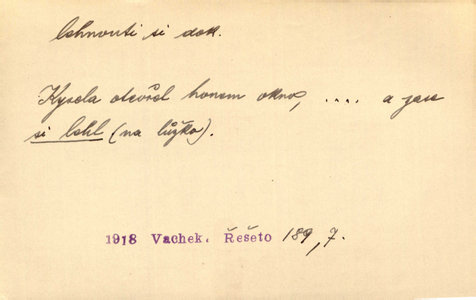 lehnouti si dok.
Kysela otevřel honem okno, .... a zase
si lehl (na lůžko).
1918 Vachek, Řešeto 189, 7.